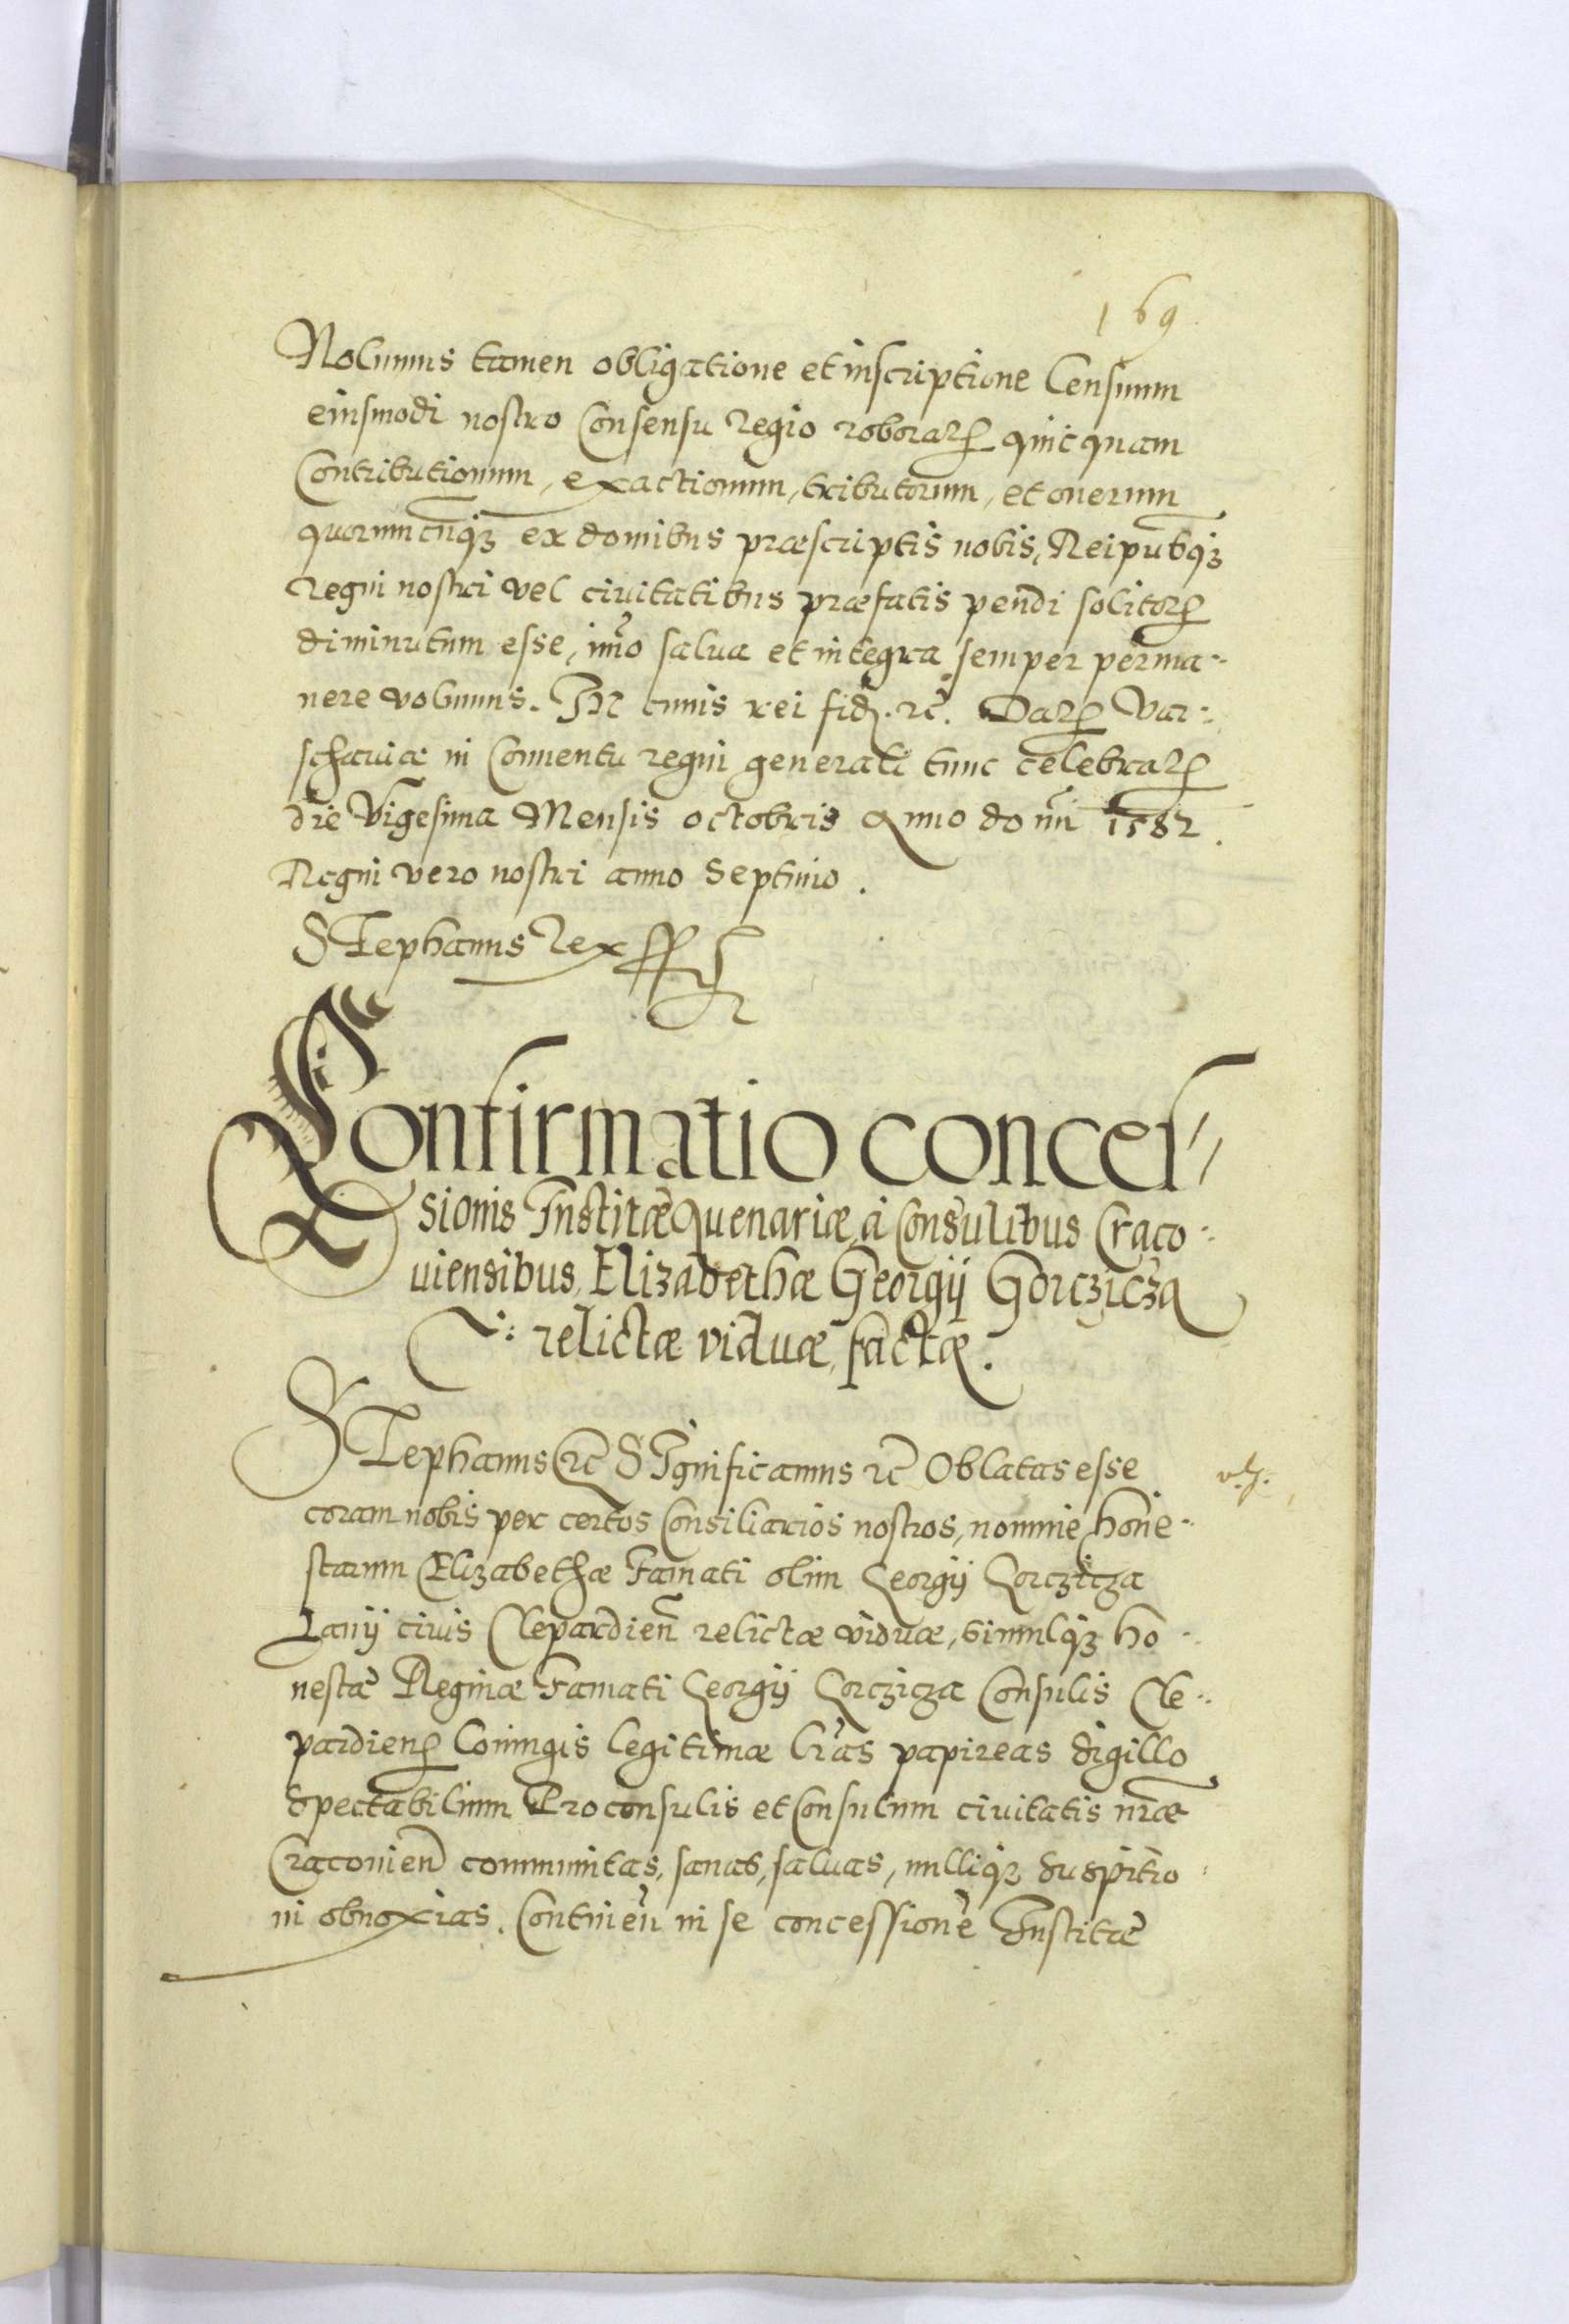 169
Nolumus tamen obligatione et inscriptione Censuum
eiusmodi nostro Consensu regio roborat quicquam
Contributionum, exactionum, tributorum, et onerum
quorumcunq3 ex domibus præscriptis nobis, Reipubq3
regni nostri vel civitatibus præfatis pendi solitor
diminutum esse, imo salva et integra semper perma-
nere volumus. In cuius rei fid. etc. Dat Var-
schaviæ in Conventu regni generali tunc celebrat
die Vigesima Mensis octobris Anno domi 1582.
Regni vero nostri anno Septimo.
Stephanus Rex sst
Confirmatio conces-
sionis Institæ Quenariæ, à Consulibus Craco-
uiensibus, Elizabethæ Georgij Gorczicza
relictæ viduæ, factæ.
Stephanus etc Significamus etc Oblatas esse
coram nobis per certos Consiliarios nostros, nomine hone-
starum Elizabethæ Famati olim Georgij Gorczicza
Lanij civis Clepardien relictæ viduæ, simulq3 ho-
nestæ Reginæ Famati Georgij Gorczicza Consulis Cle-
pardien Coniugis legitimæ lras papireas sigillo
Spectabilium Proconsulis et Consulum civitatis nræ
Cracovien communitas, sanas, salvas, nulliq3 suspitio-
ni obnoxias. Continen in se concessione Institæ